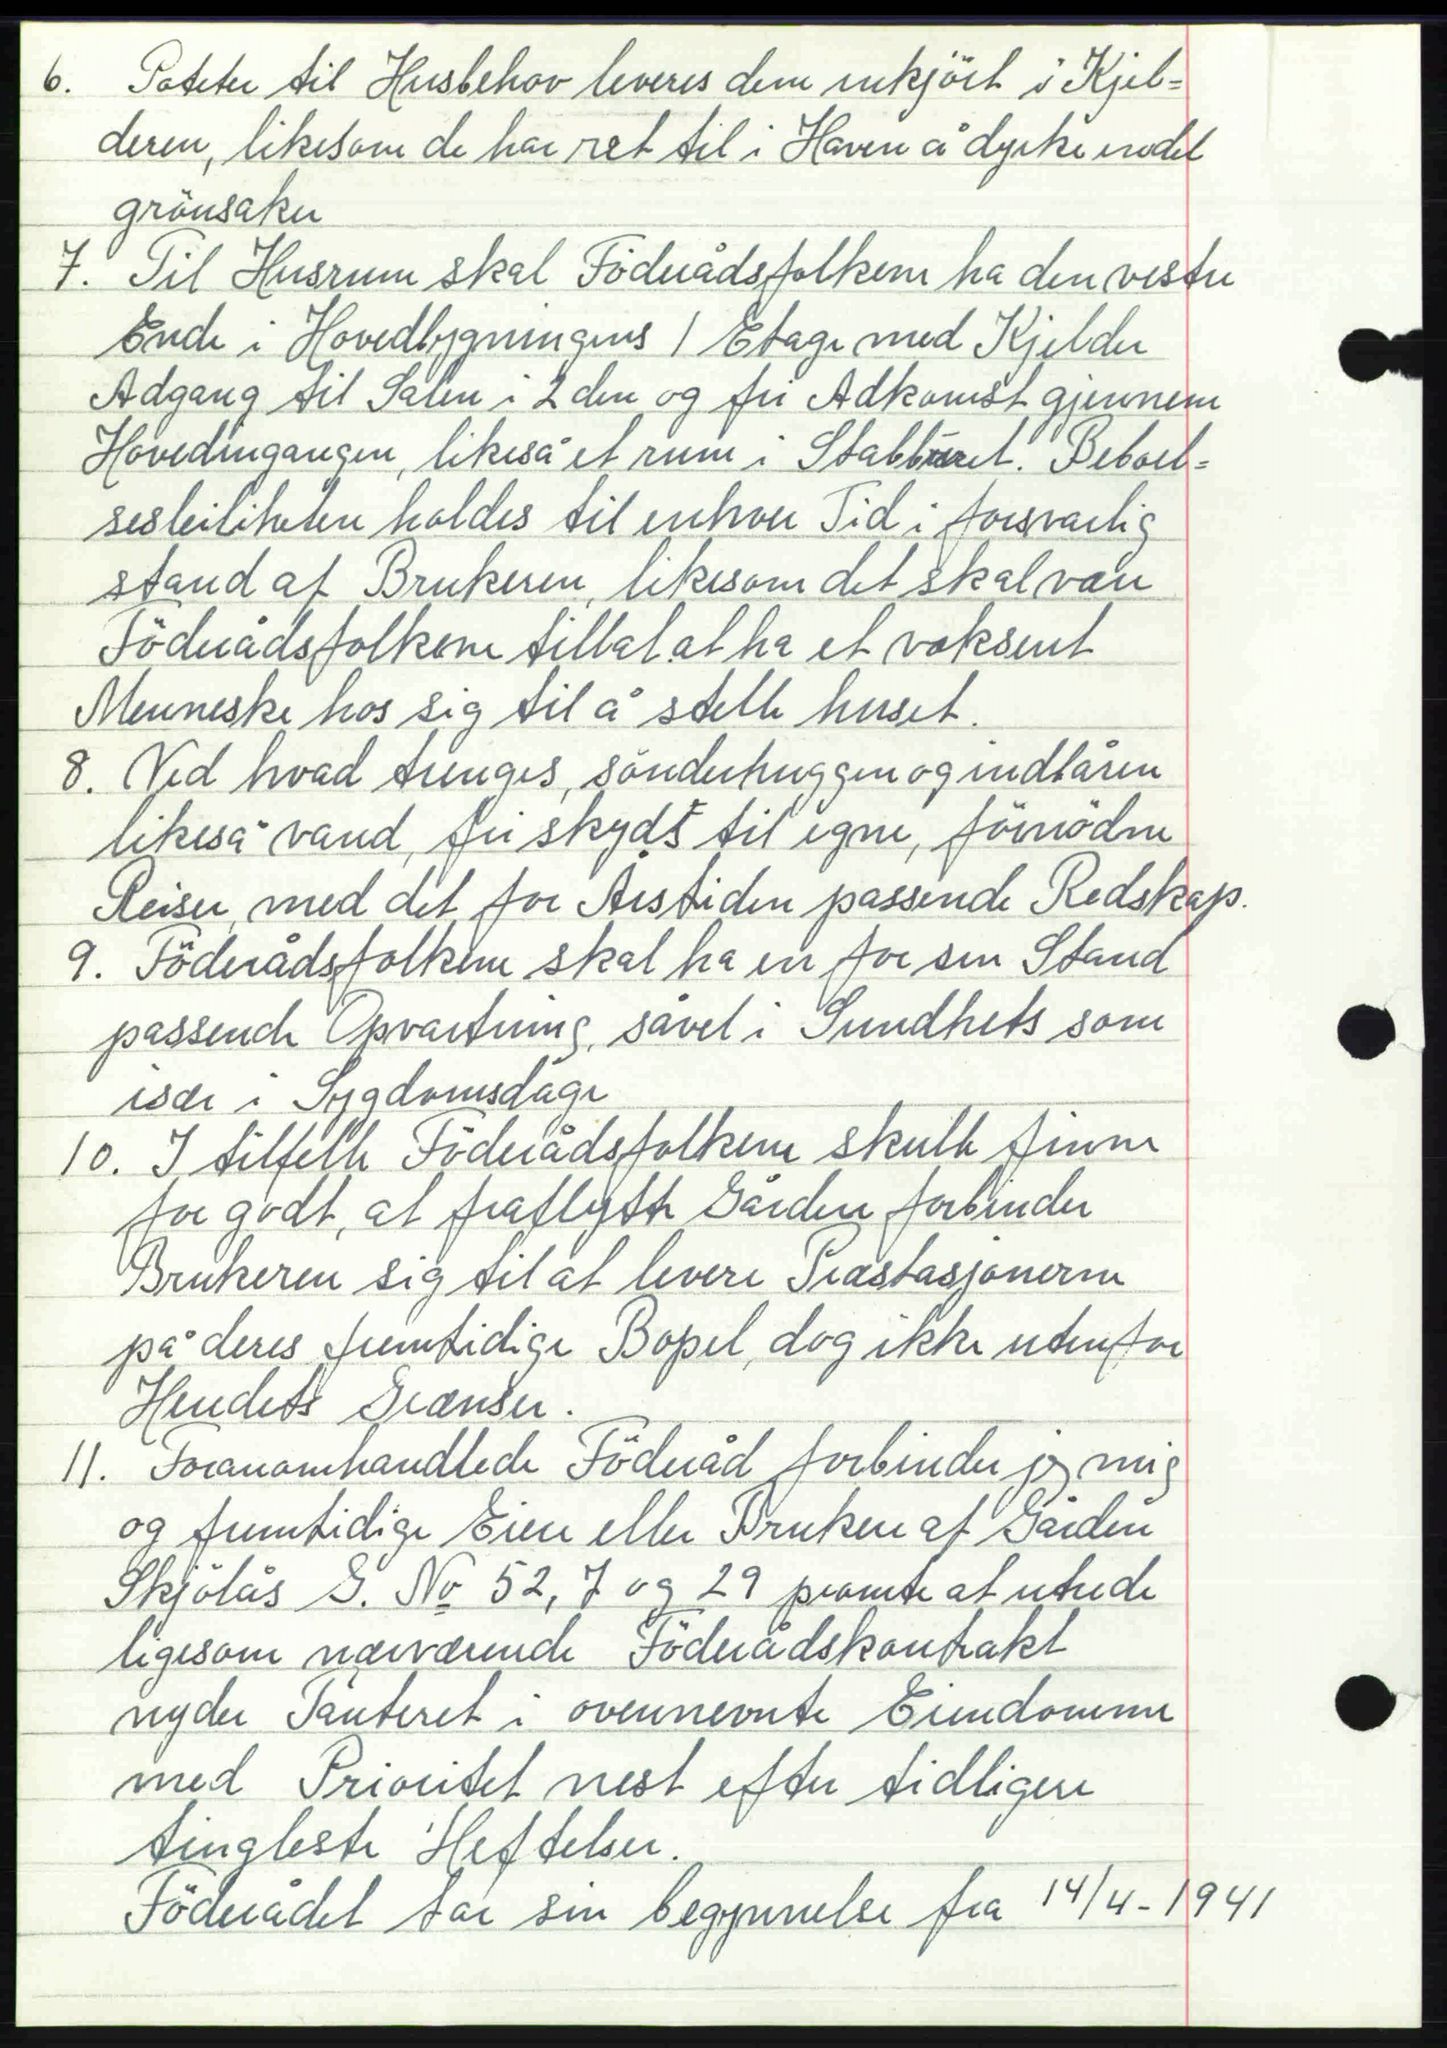 6. Poteter til Husbehov leveres dem inkjört i Kjel=
deren, likesom de har ret til i Haven å dyrke endel
grönsaker
7. Til Husrum skal Föderådsfolkene ha den vestre
Ende i Hovedbygningens 1 Etage med Kjelder
Adgang til Salen i 2den og fri Adkomst gjennem
Hovedingangen, likeså et rum i Stabburet. Beboel=
sesleiliheten holdes til enhver Tid i forsvarlig
stand af Brukeren, likesom det skal være
Föderådsfolkene tillat at ha et voksent
Menneske hos sig til å stelle huset.
8. Ved hvad trenges, sönderhuggen og indbåren
likeså vand, fri skyds til egne, förnödne
Reiser, med det for Årstiden passende Redskap.
9. Föderådsfolkene skal ha en for sin Stand
passende Opvartning, såvel i Sundhets som
især i Sygdomsdage
10. I tilfelle Föderådsfolkene skulle finne
for godt, at fraflytte Gården forbinder
Brukeren sig til at levere Præstasjonerne
på deres fremtidige Bopel, dog ikke utenfor
Herredets Grænser.
11. Foranomhandlede Föderåd forbinder jeg mig
og fremtidige Eiere eller Brukere af Gården
Skjölås G. No 52, 7 og 29 promte at utrede
ligesom nærværende Föderådskontrakt
nyder Panteret i ovennevnte Eiendomme
med Prioritet nest efter tidligere
tingleste Heftelser.
Föderådet tar sin begynnelse fra 14/4-1941